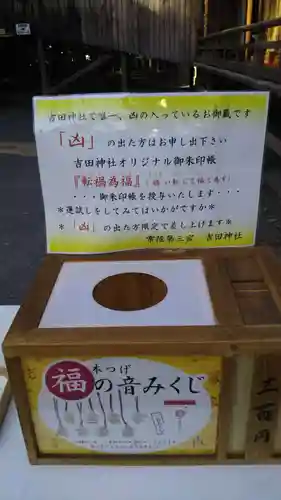 吉田神社で唯一、凶の入っているお御籤です
「凶」の出た方はお申し出下さい
吉田神社オリジナル御朱印帳
『転禍為福』(禍い転じて福と為す)
・・・御朱印帳を授与いたします・・・
＊運試しをしてみてはいかがですか＊
＊「凶」の出た方限定で差し上げます＊
常陸第三宮 吉田神社
木つげ
福の音みくじ
三百円